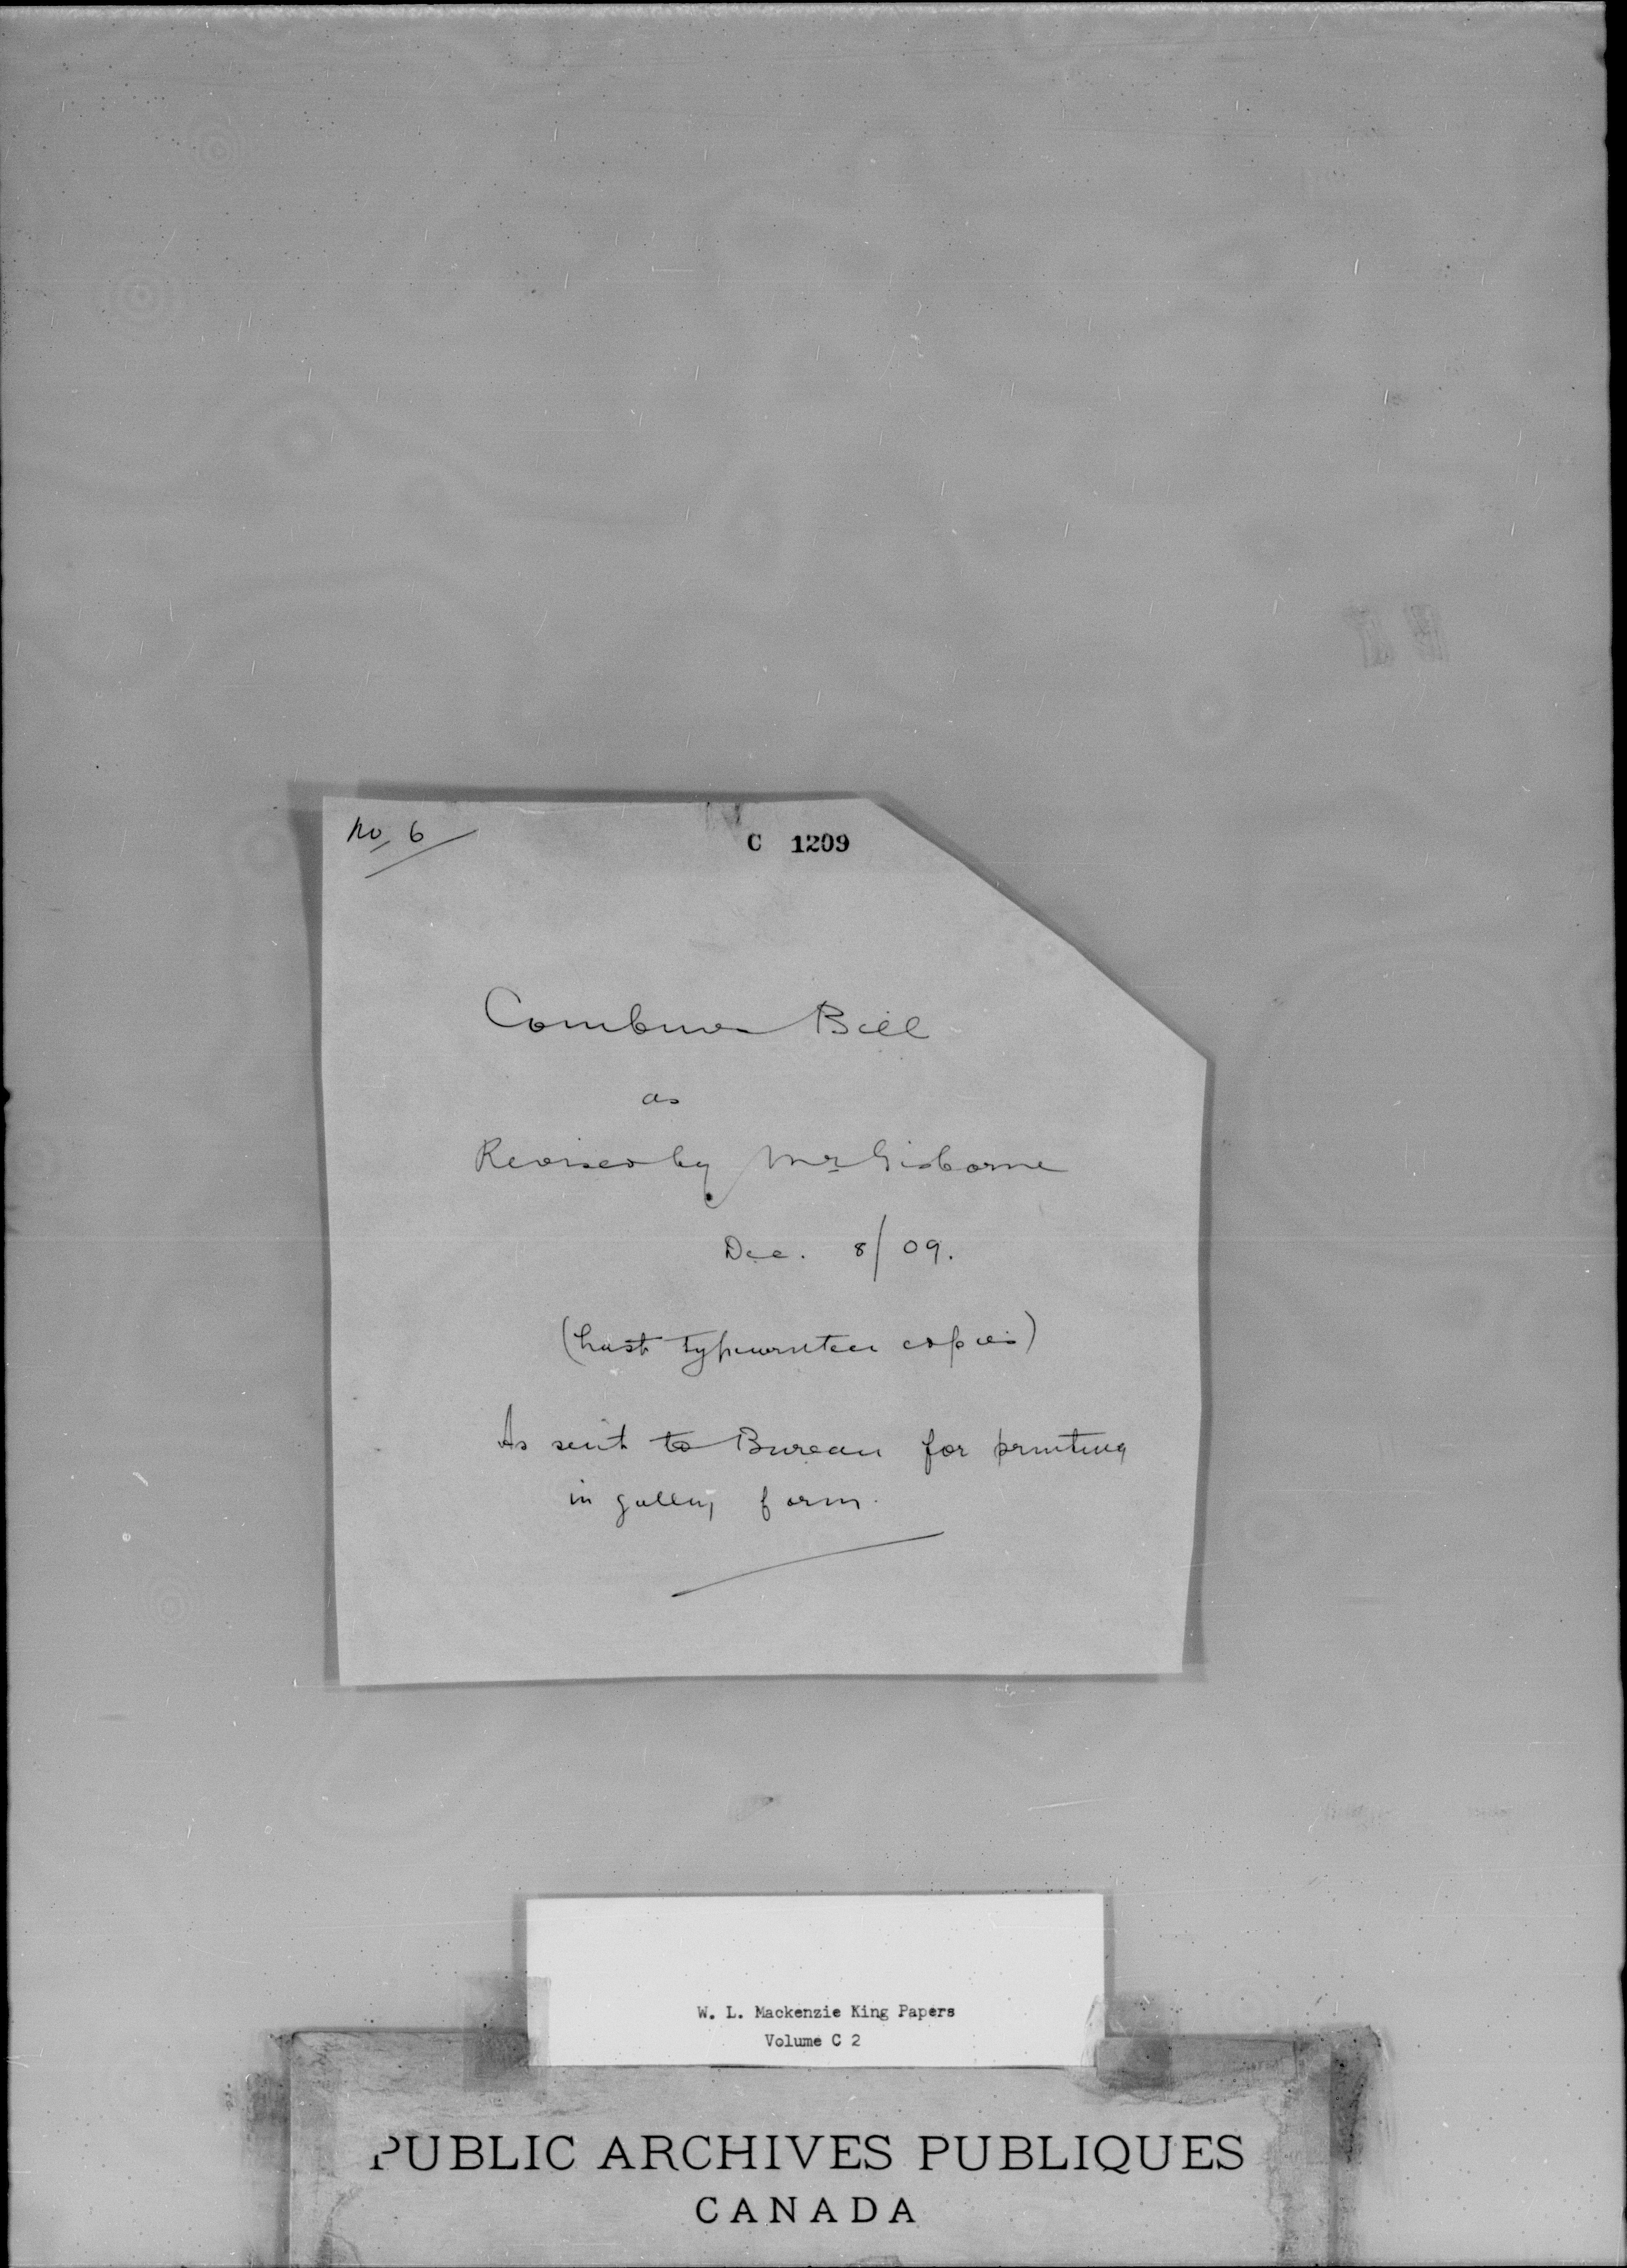 No. 6
C 1209
Combines Bill
as
Revised by Mr Gisborne
Dec. 8/09.
(Last typewritten copies)
As sent to Bureau for printing
in galley form.
W. L. Mackenzie King Papers
Volume C 2
PUBLIC ARCHIVES PUBLIQUES
CANADA